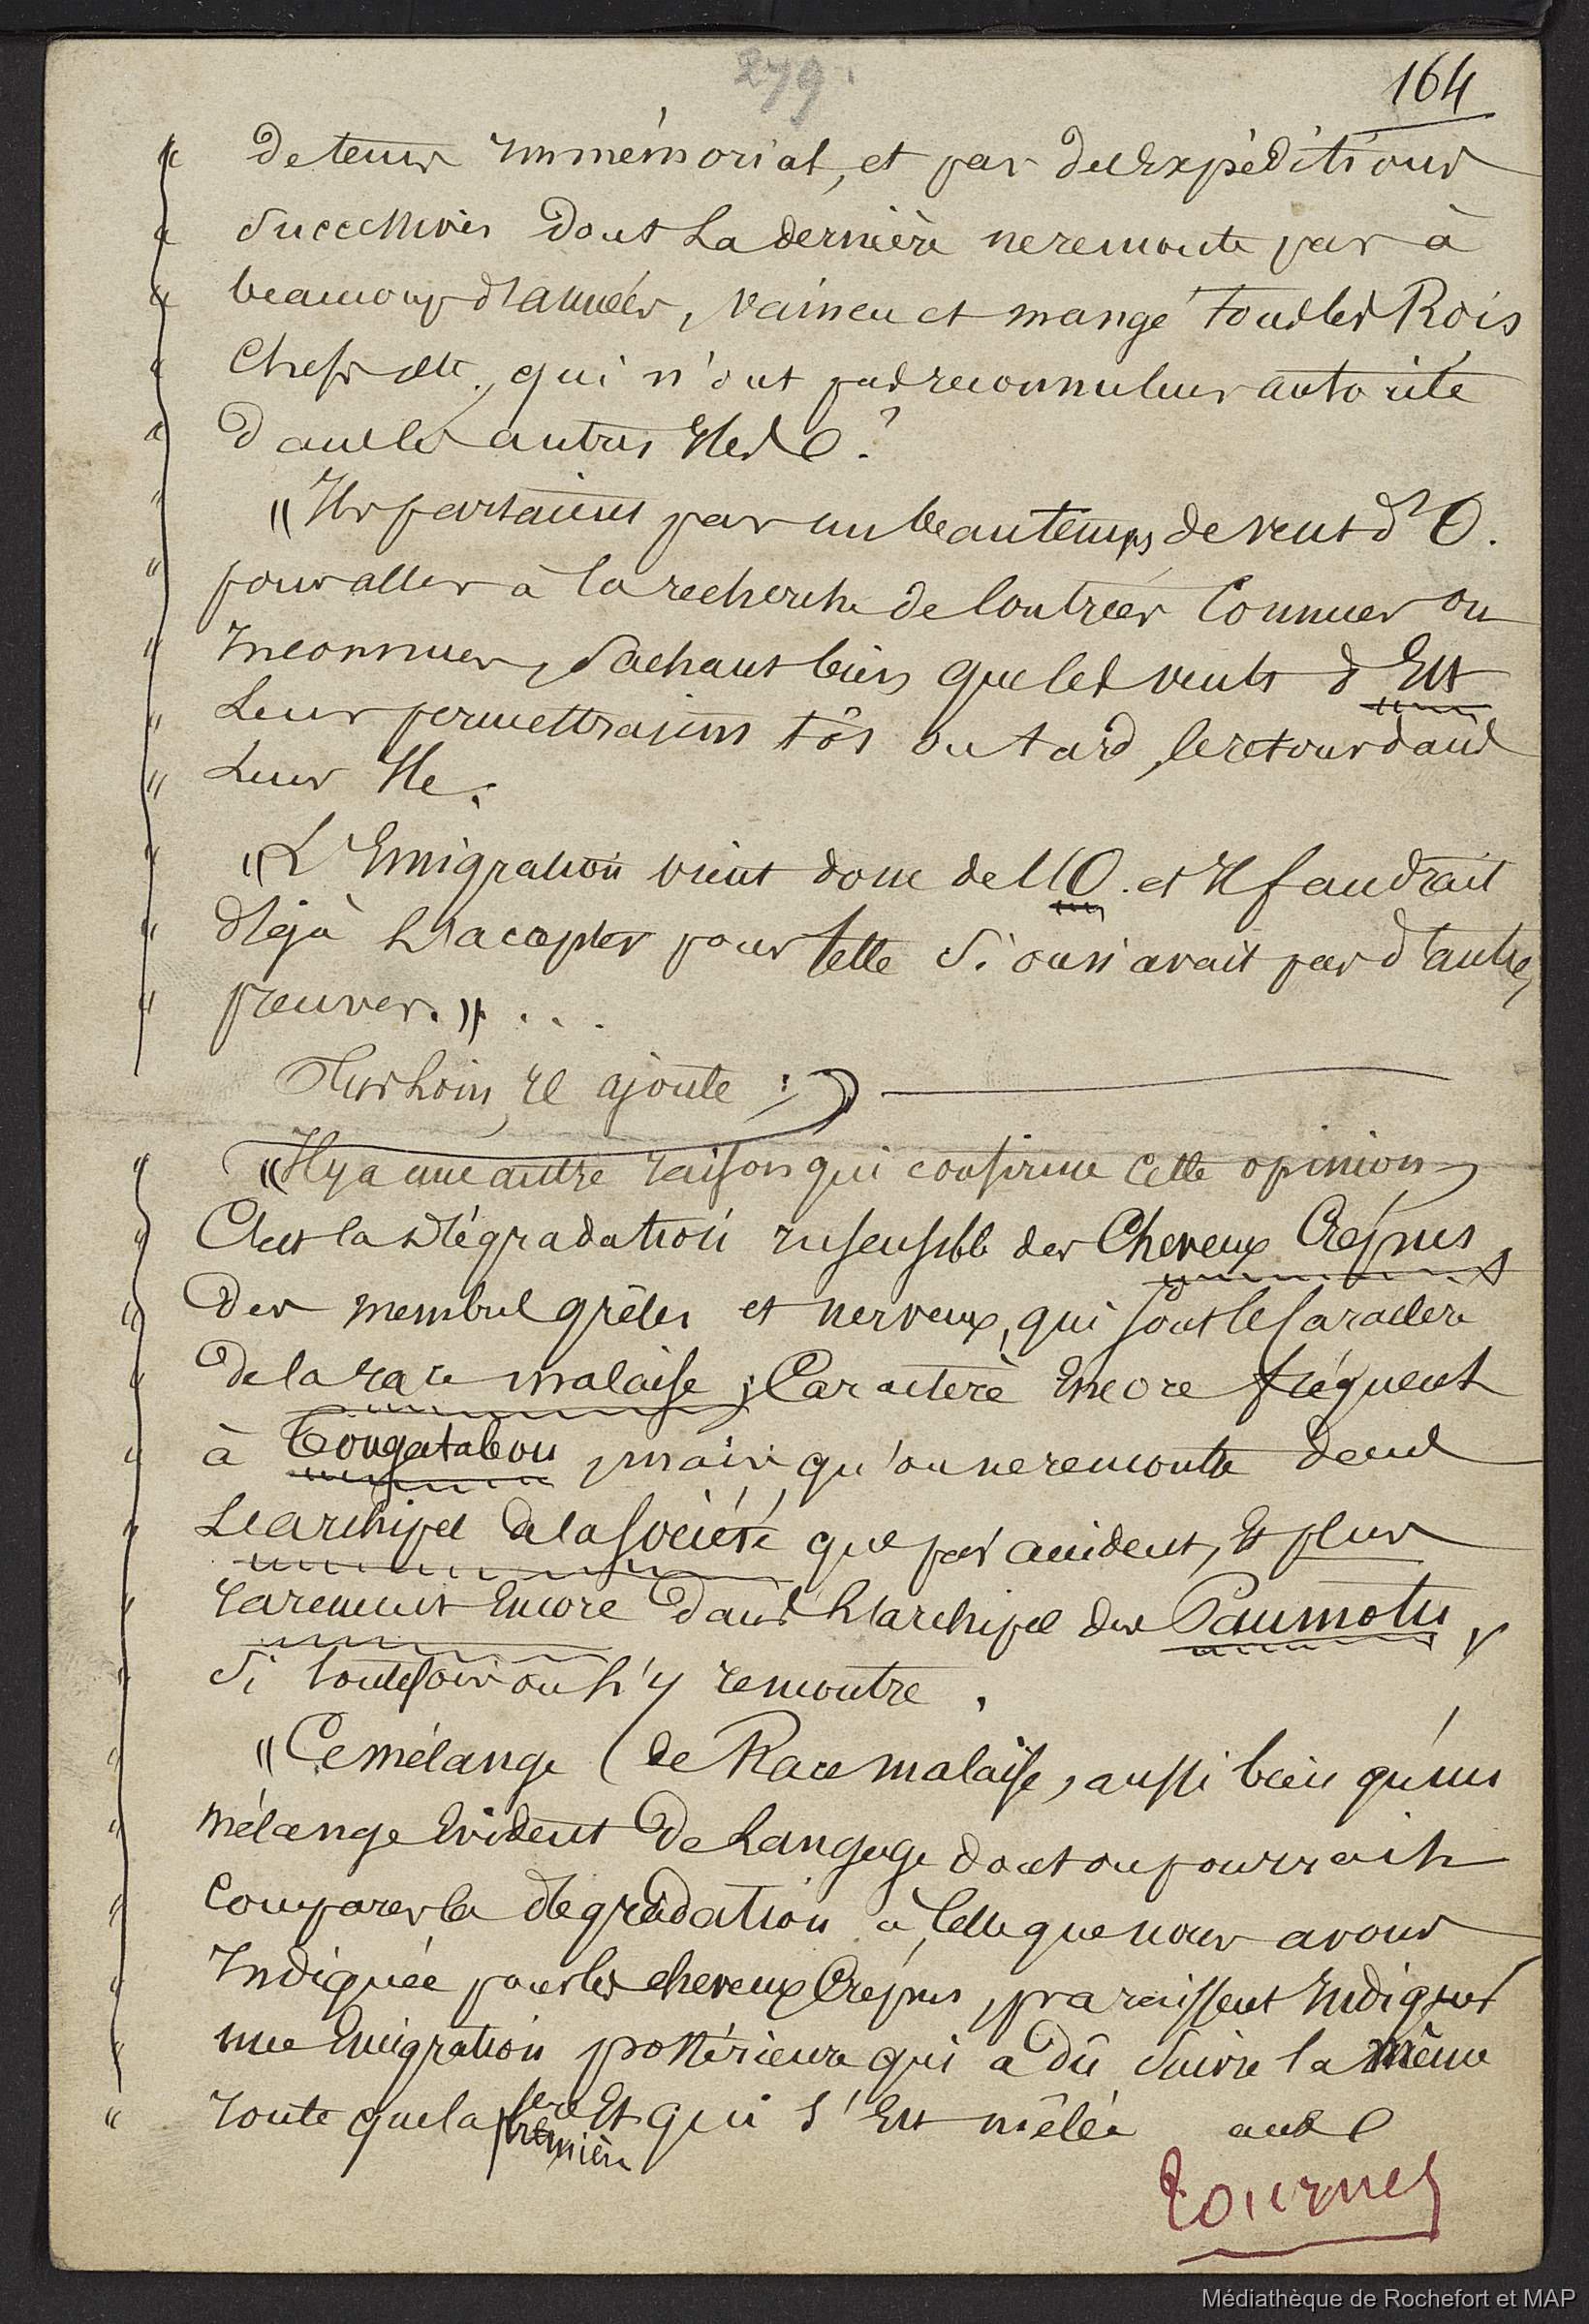 279.
164
" de tems immémorial, et par des Expéditions
" Successives dont La dernière ne remonte pas à
" beaucoup d'années, vaincu et mangé tous les Rois
" Chefs etc., qui n'ont pas reconnu leur autorité
" dans les autres Iles ?
" "Ils partaient par un beau temps de vent d'O.
" pour aller à la recherche de Contrées Connues ou
" Inconnues, Sachant bien que les vents d'Est
" Leur permettraient tôt ou tard, le retour dans
" Leur Ile.
" "L'Emigration vient donc de l'O. et Il faudrait
" déjà L'accepter pour telle Si on n'avait pas d'autres
" preuves." ...
Plus Loin, Il ajoute :
" "Il y a une autre raison qui confirme cette opinion,
" C'est la dégradation insensible des Cheveux Crépus,
" des membres grêles et nerveux, qui sont le Caractère
" de la race malaise ; Caractère Encore fréquent
" à Tongatabou, mais, qu'on ne rencontre dans
" L'archipel de la Société que par accident, Et plus
" rarement Encore dans L'archipel des Paumotu,
" Si toutefois on L'y rencontre.
" "Ce mélange (de Race malaise, aussi bien qu'un
" mélange Evident de Langage dont on pourrait
" Comparer la dégradation à Celle que nous avons
" Indiquée pour les cheveux Crépus, paraissent Indiquer
" une Emigration postérieure qui a dû Suivre la même
" route que la première Et qui s'Est mêlée aux
Tournez
Médiathèque de Rochefort et MAP